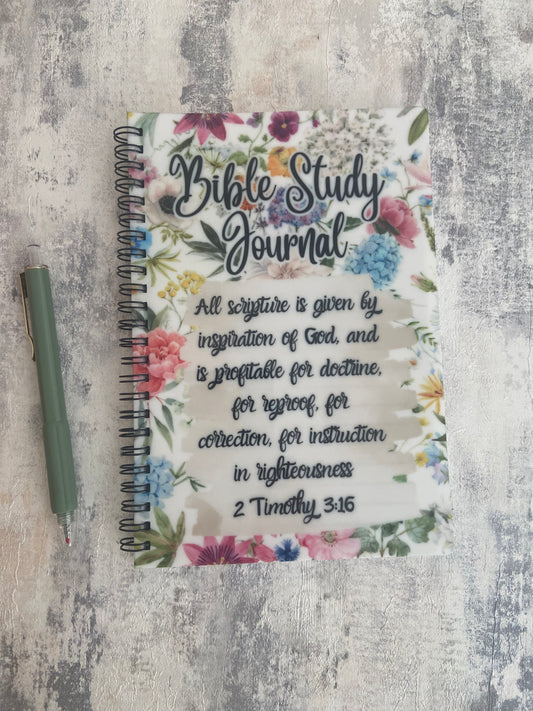 Bible Study
Journal
All scripture is given by
inspiration of God, and
is profitable for doctrine,
for reproof, for
correction, for instruction
in righteousness
2 Timothy 3:16